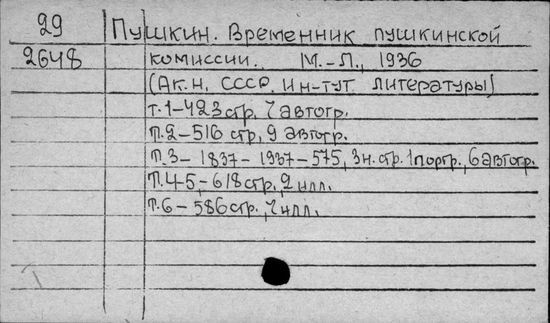 29 Пушкин. Временник пушкинской
2648 комиссии. М.-Л., 1936
(Ак.н. СССР. Ин-тут литературы)
т.1-423 стр, 7 автогр.
т.2-516 стр, 9 автогр.
т.3-1837-1937-575, 3н.стр. 1 портр., 6 автогр.
т.4-5,-618 стр., 2 илл.
т.6-586 стр., 7 илл.